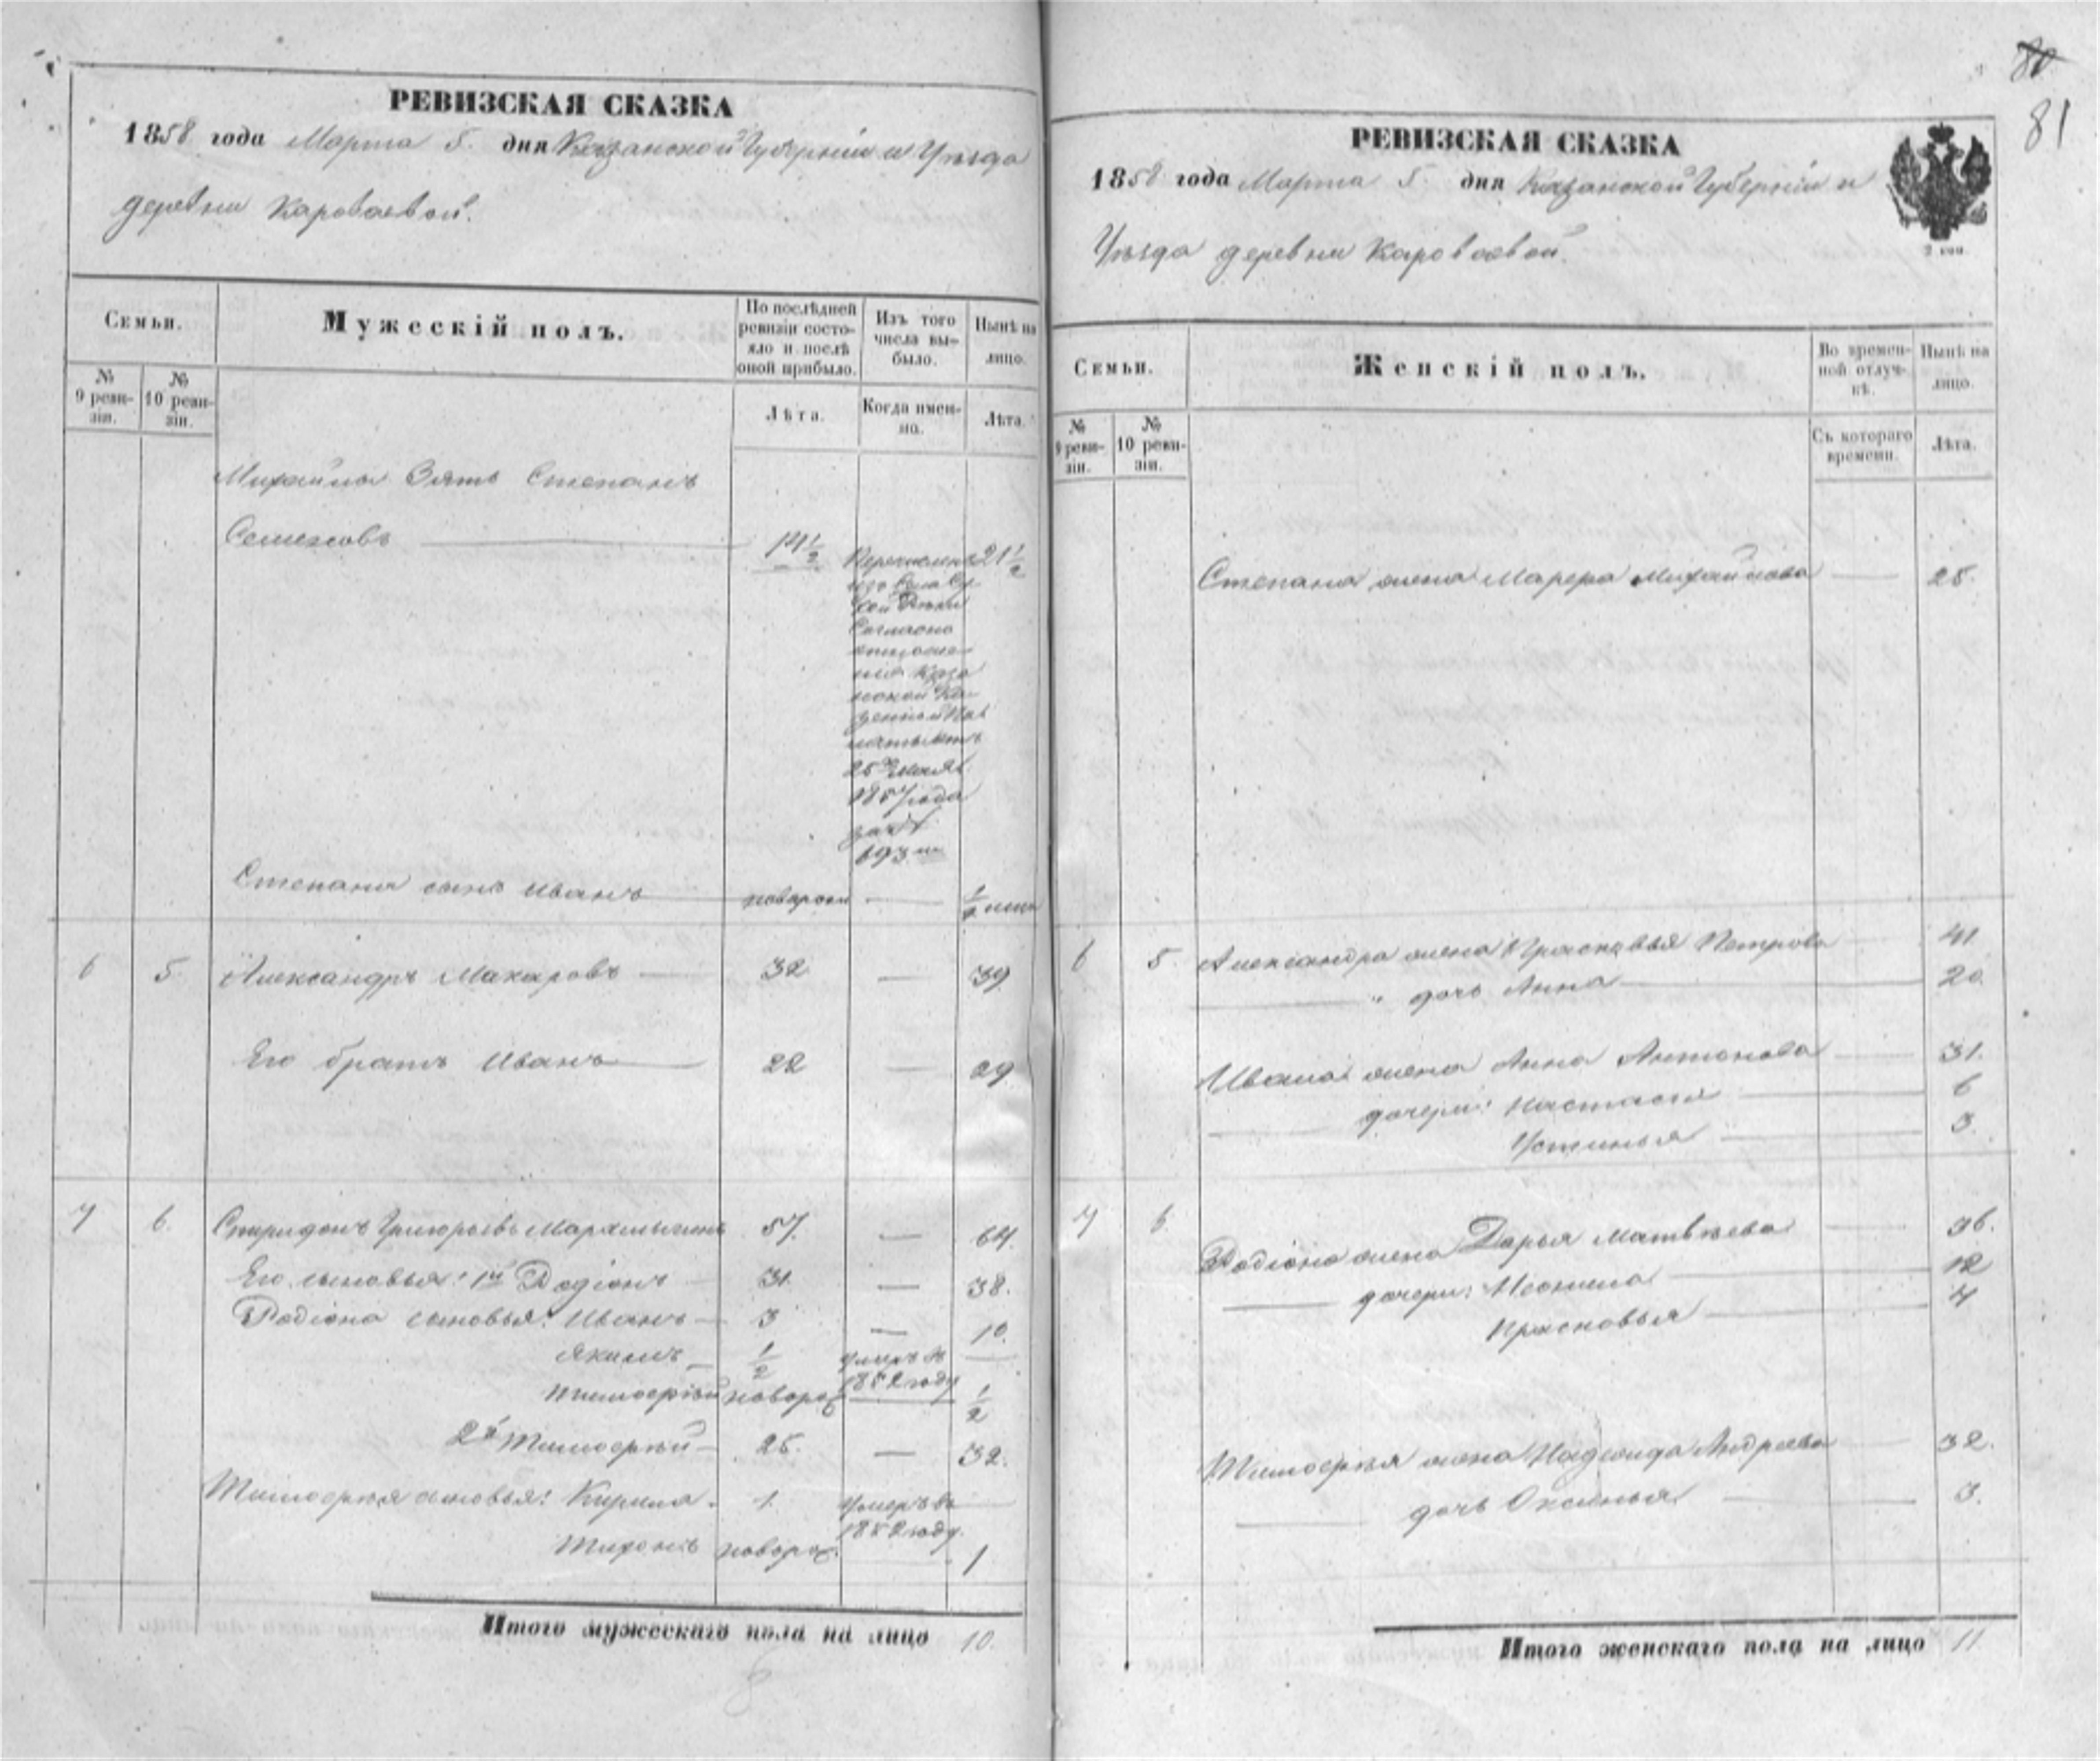 80
81
РЕВИЗСКАЯ СКАЗКА
1858 года Марта 5. дня Казанской Губерніи и Уѣзда
деревни Кароваевой.
Семьи.
Мужескій полъ.
По послѣдней ревизіи состо-
яло и послѣ оной прибыло.
Изъ того числа вы-
было.
Нынѣ на лицо.
№ 9 реви-
зіи.
№ 10 реви-
зіи.
Лѣта.
Когда имен-
но.
Лѣта.
Михайлы Зять Степанъ
Семеновъ 14 1/2 21 1/2
Перечисленъ
изъ Села
Согласно
Каза
нской Ка-
зенной Пал
аты отъ
25
1857 года
за №
693
Степана сынъ Иванъ новорож 1/2
6 5. Александръ Макаровъ 32 — 39.
Его братъ Иванъ 22 — 29
7 6. Спиридонъ Григорьевъ 57. — 64.
Его сыновья: 1й Родіонъ 31. — 38.
Родіона сыновья: Иванъ 3 — 10.
Якимъ 1/2 умеръ въ 1852 году —
Тимофей новорож 1/2
2й Тимофей 25. — 32.
Тимофея сыновья: Кирила 1. умеръ въ 1852 году. —
Тихонъ новорож. 1
Итого мужескаго пола на лицо 10.
РЕВИЗСКАЯ СКАЗКА
1858 года Марта 5. дня Казанской Губерніи и
Уѣзда деревни Кароваевой.
2 коп.
Семьи.
Женскій полъ.
Во времен-
ной отлуч-
кѣ.
Нынѣ на лицо.
№ 9 реви-
зіи.
№ 10 реви-
зіи.
Съ котораго времени.
Лѣта.
Степана жена Марфа Михайлова — 25.
6 5. Александра жена Прасковья Петрова 41
" дочь Анна 20.
Ивана жена Анна Антонова 31.
дочери: Настасья 6
Устинья 3.
7 6. Родіона жена Дарья Матвѣева 36.
дочери: Неонила 12
Прасковья 4
Тимофея жена Надежда Андреева 32.
дочь Оксинья 3.
Итого женскаго пола на лицо 11